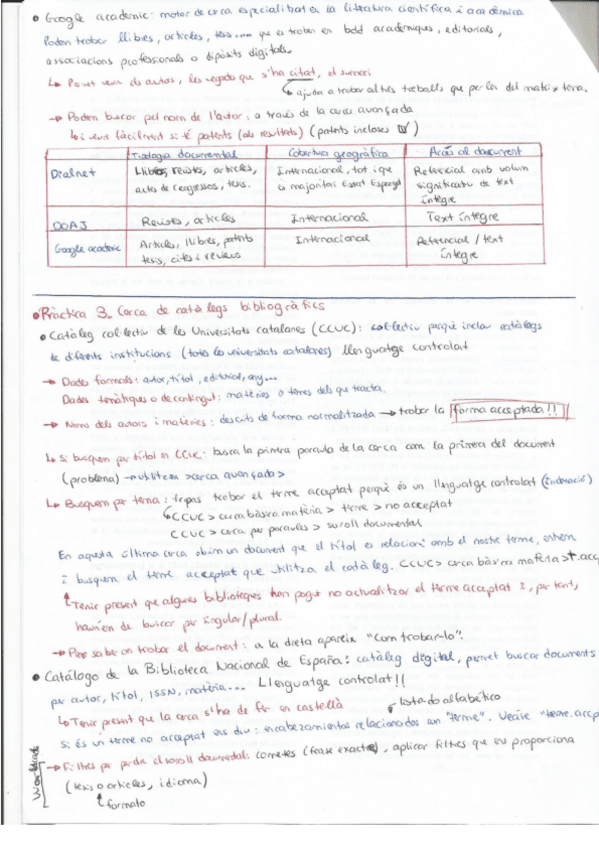 • Google acadèmic: motor de cerca especialitzat en la literatura científica i acadèmica
Poden trobar llibres, articles, tesis.... que es troben en bdd acadèmiques, editorials,
associacions professionals o dipòsits digitals.
↳ Pot veure els autors, les vegades que s'ha citat, el
↳ ajuda a trobar altres treballs que parlen del mateix tema.
→ Poden buscar pel nom de l'autor: a través de la cerca avançada
↳ i veure fàcilment si té patents (als resultats) (patents incloses ☑)
Tipologia documental | Cobertura geogràfica | Accés al document
Dialnet | Llibres, revistes, articles, actes de congressos, tesis. | Internacional, tot i que és majoritari Estat Espanyol | Referencial amb volum significatiu de text íntegre
DOAJ | Revistes, articles | Internacional | Text íntegre
Google acadèmic | Articles, llibres, patents tesis, cites i reviews | Internacional | Referencial / text íntegre
• Pràctica 3. Cerca de catàlegs bibliogràfics
• Catàleg col·lectiu de les Universitats catalanes (CCUC): col·lectiu perquè inclou catàlegs
de diferents institucions (totes les universitats catalanes) llenguatge controlat
→ Dades formals: autor, títol, editorial, any...
Dades temàtiques o de contingut: matèries o temes dels que tracta.
→ Noms dels autors i matèries: descrits de forma normalitzada → trobar la forma acceptada!!
↳ Si busquem per títol en CCUC: busca la primera paraula de la cerca com la primera del document
(problema) → utilitzem >cerca avançada>
↳ Busquem per tema: trobar el terme acceptat perquè és un llenguatge controlat (indexació)
↳ CCUC > cerca bàsica matèria > terme > no acceptat
CCUC > cerca per paraules > scroll documental
En aquesta última cerca obrim un document que el títol es relacioni amb el nostre terme, entrem
i busquem el terme acceptat que utilitza el catàleg. CCUC > cerca bàsica matèria > t. acc
↑ Tenir present que algunes biblioteques han pogut no actualitzar el terme acceptat i, per tant,
hauríem de buscar per singular/plural.
→ Per saber on trobar el document: a la dreta apareix "Com trobar-lo".
• Catálogo de la Biblioteca Nacional de España: catàleg digital, permet buscar documents
per autor, títol, ISSN, matèria... Llenguatge controlat!!
↳ Tenir present que la cerca s'ha de fer en castellà
listado alfabético
si és un terme no acceptat ens diu: encabezamientos relacionados con "terme". Véase "terme accp
Worldcat
→ Filtres per perdre el scroll documental: cometes (frase exacta), aplicar filtres que ens proporciona
(tesis o articles, idioma)
↳ formato